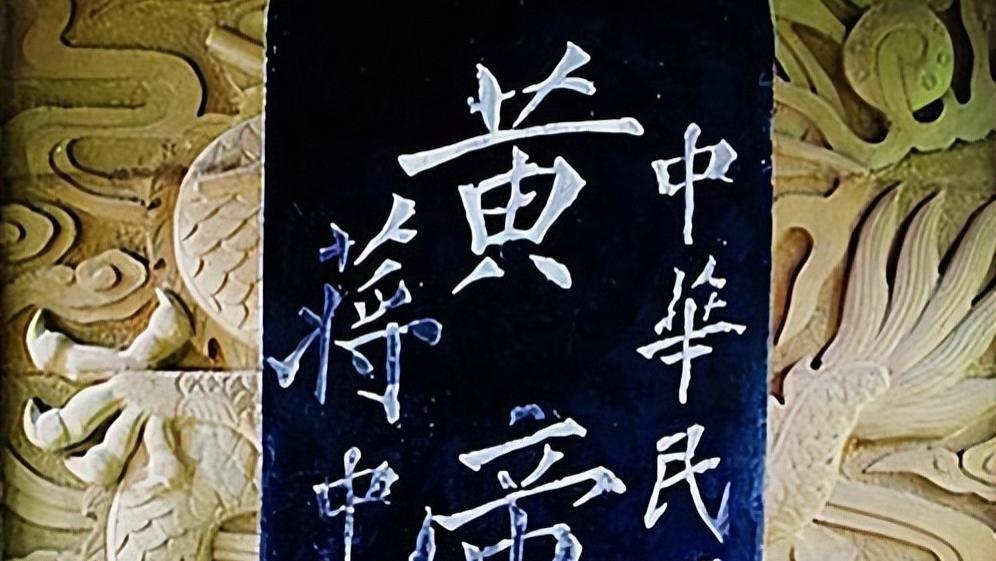 中華民
黄帝
蔣中